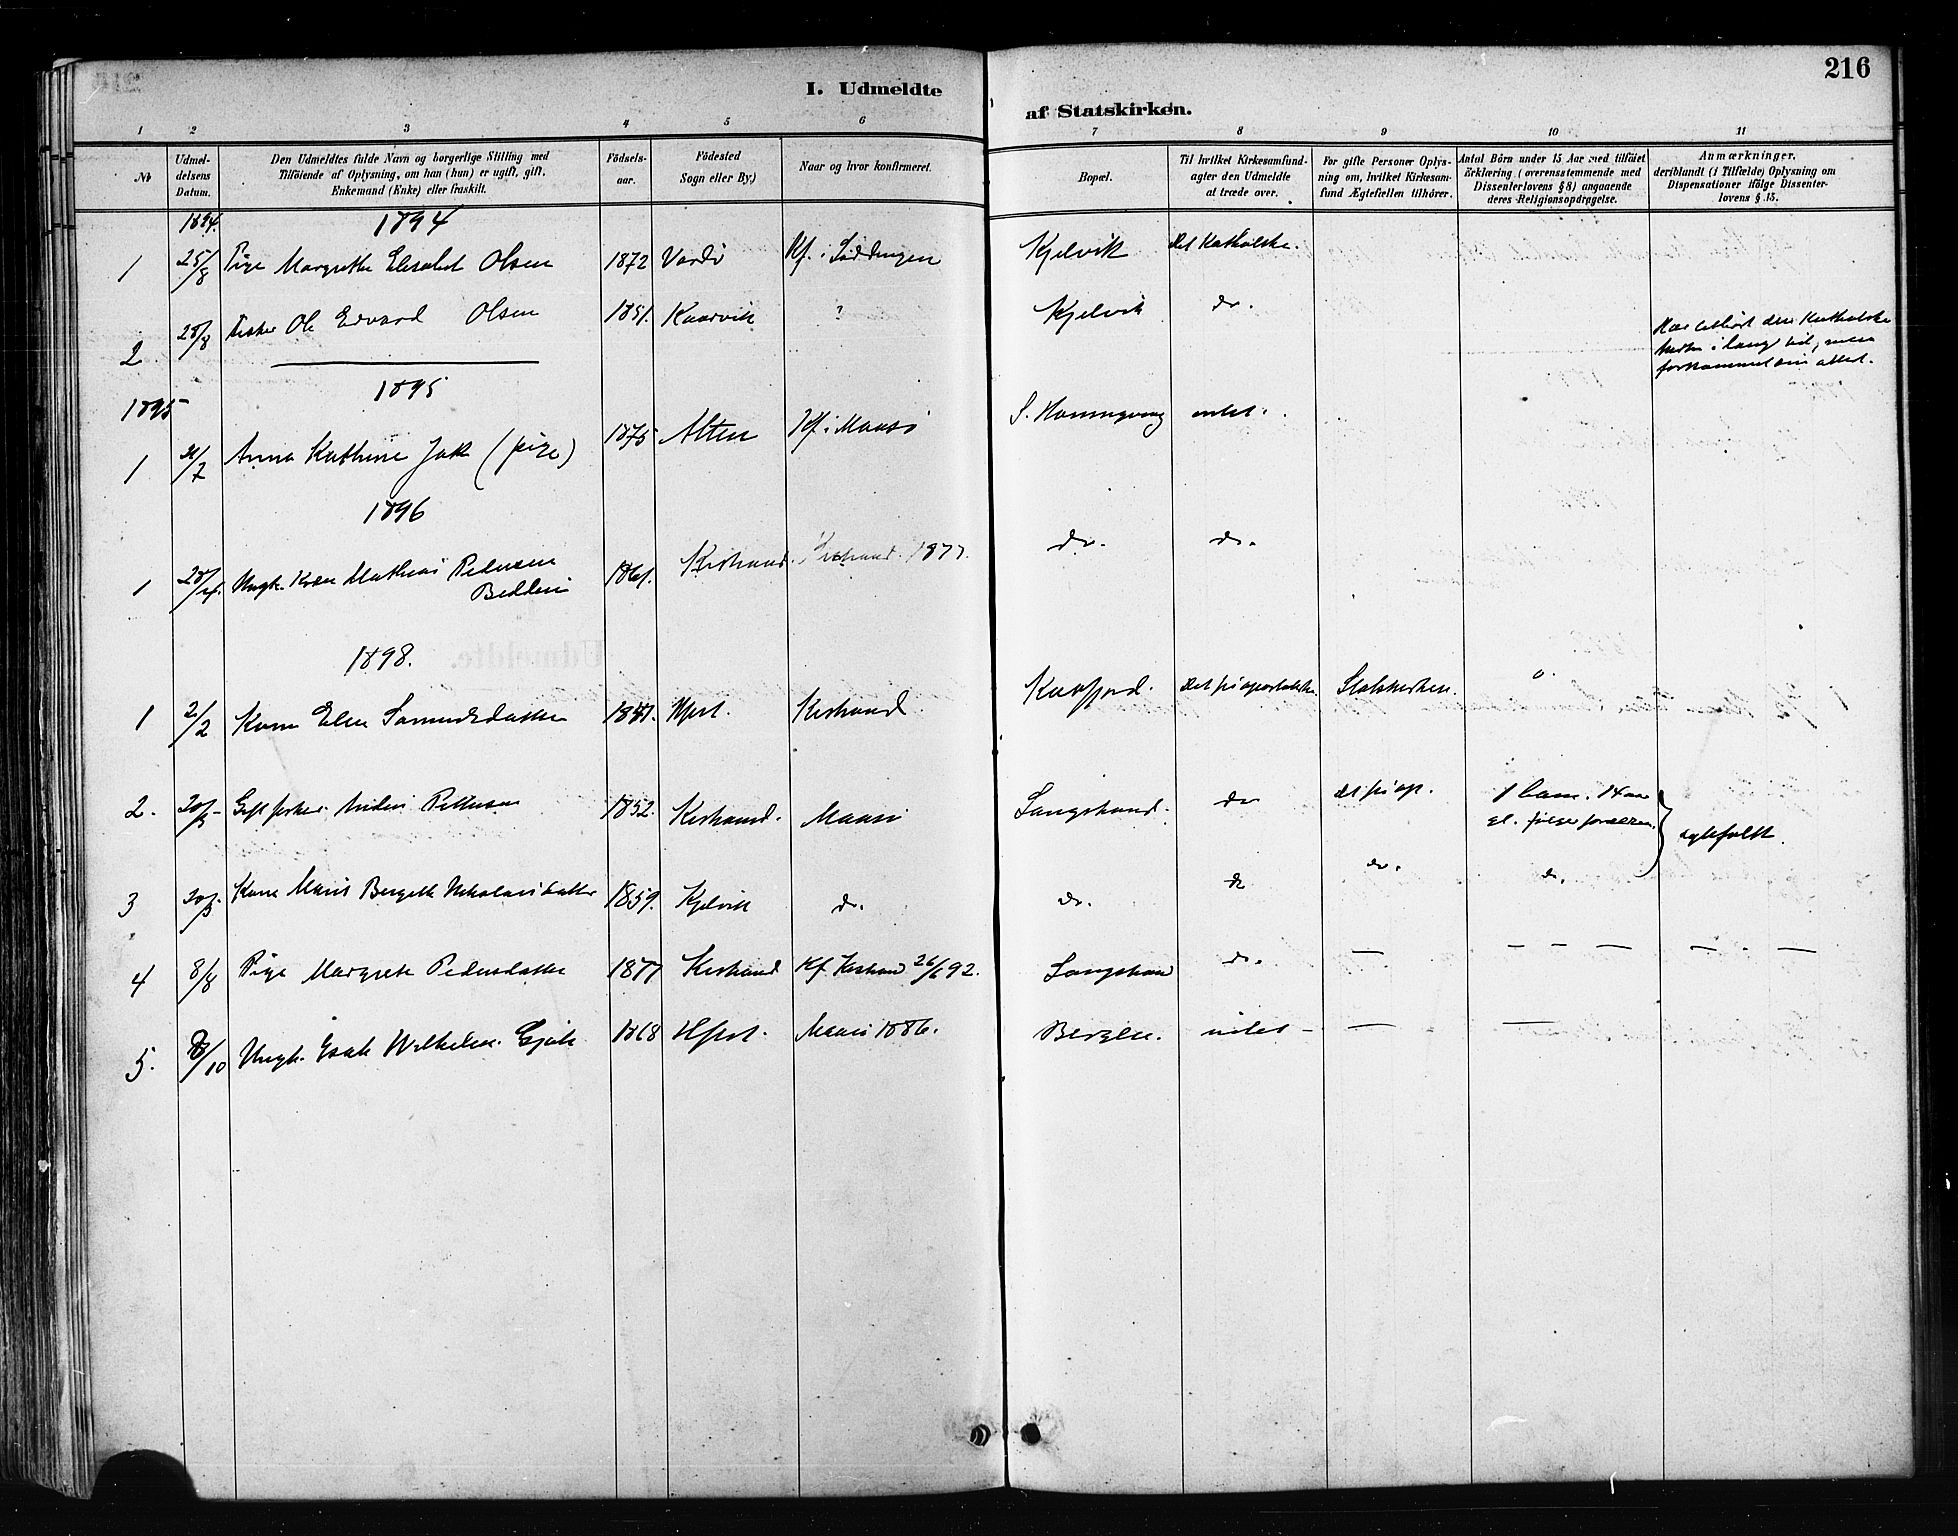 216
I. Udmeldte af Statskirken.
1 2 3 4 5 6 7 8 9 10 11
No
Udmeldelsens Datum.
Den Udmeldtes fulde Navn og borgerlige Stilling med
Tilföiende af Oplysning, om han (hun) er ugift, gift,
Enkemand (Enke) eller fraskilt.
Födselsaar.
Födested
Sogn eller By.)
Naar og hvor konfirmeret.
Bopæl.
Til hvilket Kirkesamfund-
agter den Udmeldte
at træde over.
For gifte Personer Oplys-
ning om, hvilket Kirkesam-
fund Ægtefællen tilhörer.
Antal Börn under 15 Aar med tilföiet
Erklæring (overensstemmende med
Dissenterlovens § 8) angaaende
deres Religionsopdragelse.
Anmærkninger,
deriblandt (i Tilfælde) Oplysning om
Dispensationer ifölge Dissenter-
lovens § 15.
1894. 1894
1 25/8 Pige Margrethe Elisabet Olsen 1872 Vardö Kf. i Löddingen Kjelvik Det Katholske.
2 25/8 Fisker Ole Edvard Olsen 1851. Kaarvik ? Kjelvik do.
Har tilhört den Katholske
Kirke i lang tid, men
forkommet sin attest.
1895
1895
1 21/7 Anna Kathrine (pige) 1875 Alten Kf. i Maasö S. Honningvaag intet.
1896
1 28/4. Ungk. Mathias Pedersen 1861. Kistrand. Kistrand. 1877. do. do.
1898.
1 2/2 Kone Elen Samuelsdatter Kistrand. Kaafjord. Det friapostolske Statskirken. 0
2. 20/3 Gift fisker Pettersen 1852. Kistrand. Maasö Sarnestrand. do det friap. 1 barn. 14 aar
gl. følger forældrene. ægtefolk.
3 20/3 Kone Maris Bergitte Nikolaisdatter 1859. Kjelvik do. do. do do. do.
4 8/8 Pige Margrete Pedersdatter 1877 Kistrand Kf. Kistrand 26/6 92. do. — — — — — - —
5. 8/10 Ungk. Isak Wilhelm. 1868 Maasö 1886. intet - — —